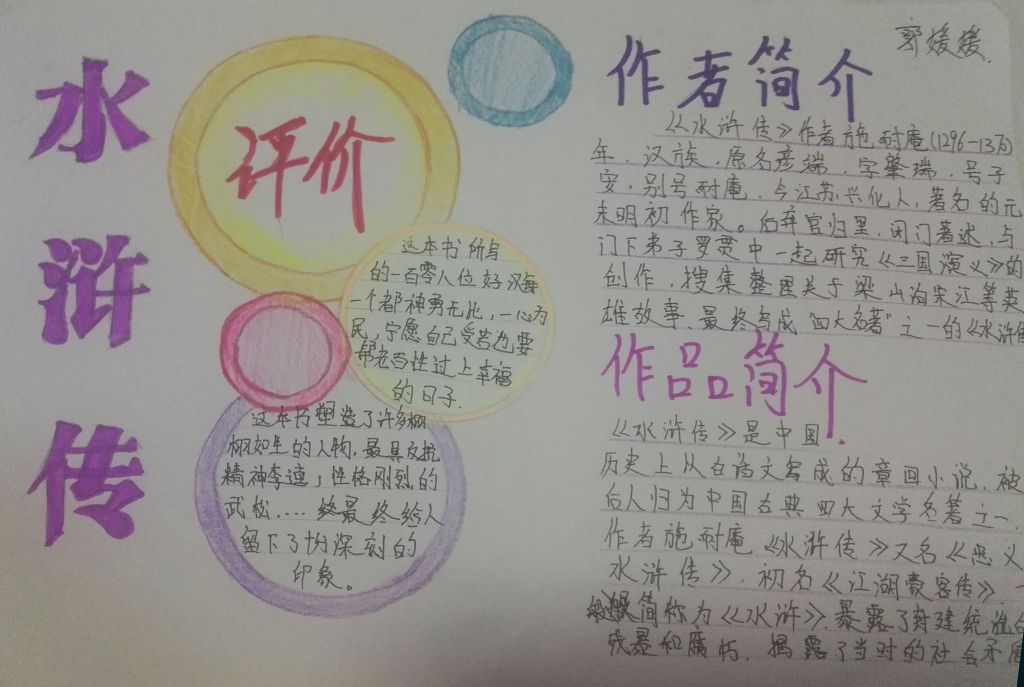 水浒传
评价
这本书所写
的一百零八位好汉每
一个都神勇无比，一心为
民，宁愿自己受苦也要
帮老百姓过上幸福
的日子.
这本书塑造了许多栩
栩如生的人物，最具反抗
精神李逵，性格刚烈的
武松.... 终最终给人
留下了十分深刻的
印象。
郭媛媛
作者简介
《水浒传》作者施耐庵(1296-1370)
年．汉族．原名彦端．字肇瑞．号子
安，别号耐庵．今江苏兴化人，著名的元
末明初作家。后弃官归里，闭门著述，与
门下弟子罗贯中一起研究《三国演义》的
创作，搜集整理关于梁山泊宋江等英
雄故事．最终写成"四大名著"之一的《水浒传
作品简介
《水浒传》是中国
历史上从白话文写成的章回小说．被
后人归为中国古典四大文学名著之一．
作者施耐庵《水浒传》又名《忠义
水浒传》．初名《江湖豪客传》．一
般简称为《水浒》．暴露了封建统治
残暴和腐朽．揭露了当时的社会矛盾